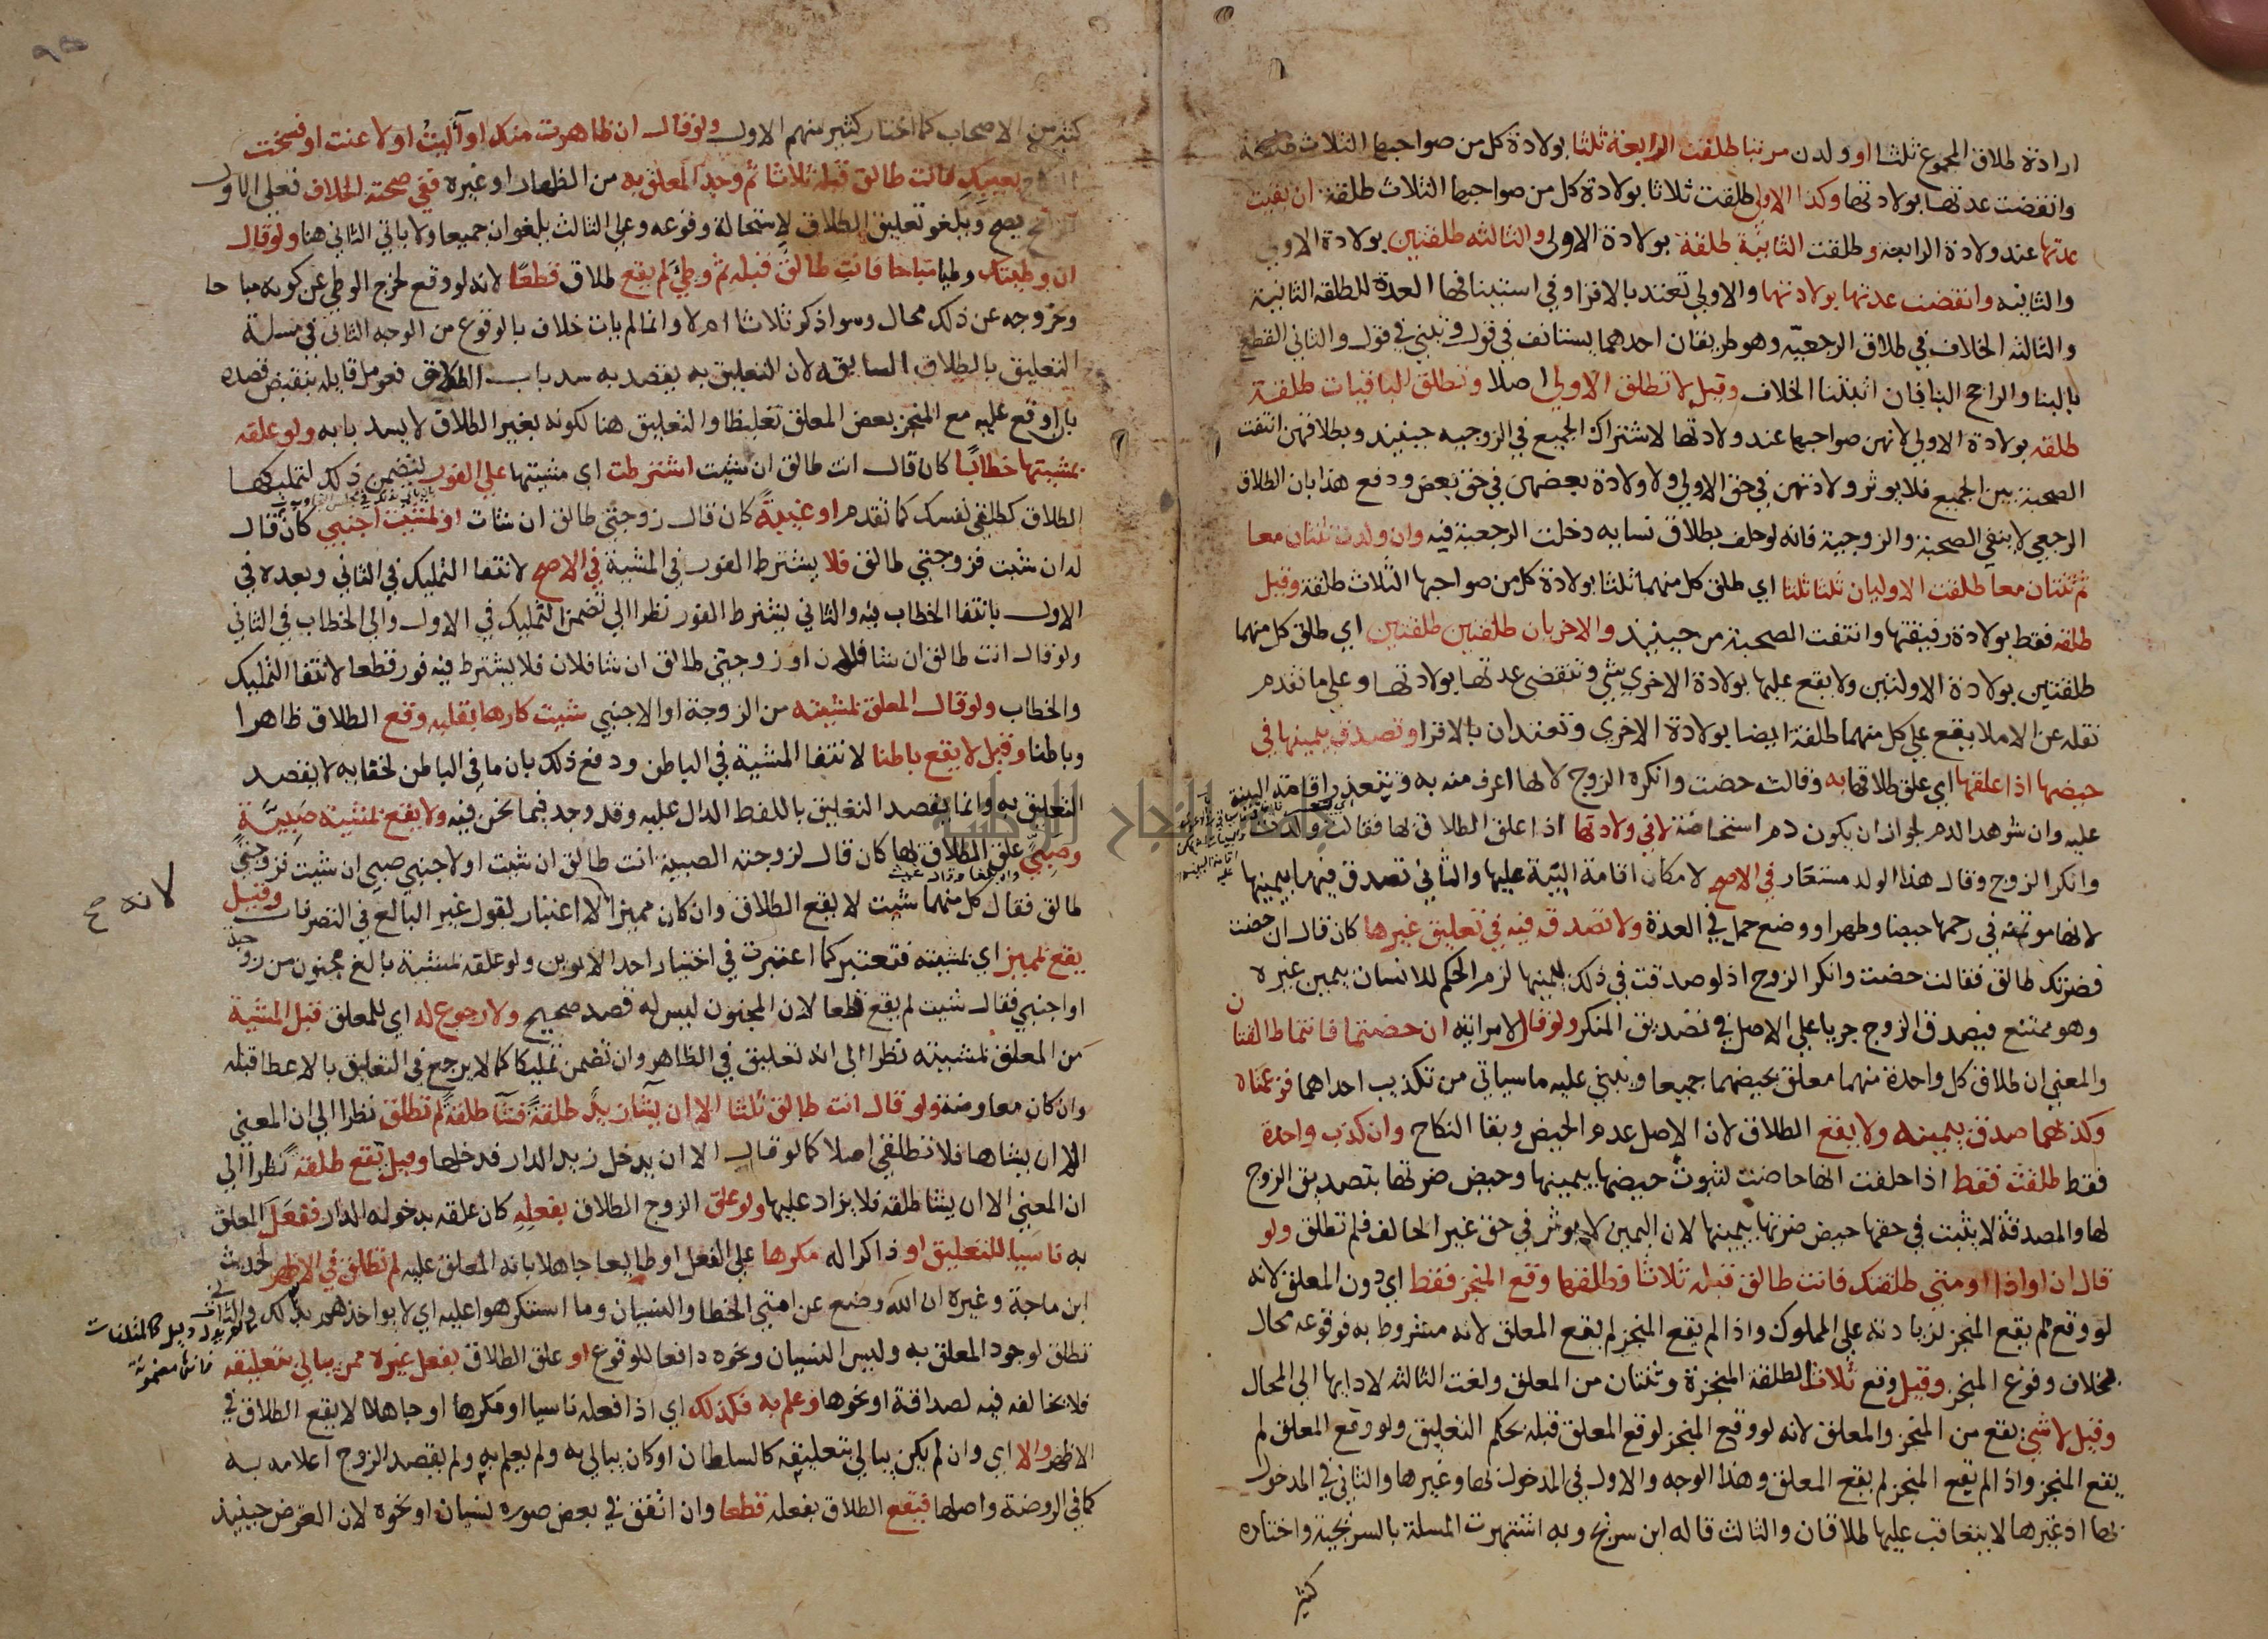 ارادة طلاق المجموع ثلثا او ولدن مرتبا طلقت الرابعة ثلثا بولادة كل من صواحبها الثلاث طلقة
وانقضت عدتها بولادتها وكذا الاولي طلقت ثلاثا بولادة كل من صواحبها الثلاث طلقة ان بقيت
عدتها عند ولادة الرابعة وطلقت الثانية طلقة بولادة الاولي والثالثه طلقتين بولادة الاولي
والثانيه وانقضت عدتهما بولادتهما والاولي تعتد بالاقرا وفي استينافها العدة للطلقه الثانية
والثالثه الخلاف في طلاق الرجعيه وهو طريقان احدهما يستانف في قول وتبني في قول والثاني القطع
بالبنا والراجح البنا فان اثبتنا الخلاف وقيل لا تطلق الاولي اصلا وتطلق الباقيات طلقة
طلقه بولادة الاولي لانهن صواحبها عند ولادتها لاشتراك الجميع في الزوجيه حينيذ وبطلاقهن انتفت
الصحبة بين الجميع فلا يوثر ولادتهن في حق الاولي ولا ولادة بعضهن في حق بعض ودفع هذا بان الطلاق
الرجعي لا ينفي الصحبة والزوجية فانه لو حلف بطلاق نسايه دخلت الرجعية فيه وان ولدت ثنتان معا
ثم ثنتان معا طلقت الاوليان ثلثا ثلثا اي طلق كل منهما ثلثا بولادة كل من صواحبها الثلاث طلقة وقيل
طلقه فقط بولادة رفيقتها وانتفت الصحبة من حينيذ والاخريان طلقتين طلقتين اي طلق كل منهما
طلقتين بولادة الاوليين ولا يقع عليها بولادة الاخري شي وتنقضي عدتها بولادتها وعلي ما تقدم
نقله عن الاملا يقع علي كل منهما طلقة ايضا بولادة الاخري وتعتدان بالاقرا وتصدق بيمينها في
حيضها اذا علقها اي علق طلاقها به وقالت حضت وانكره الزوج لانها اعرف منه به ويتعذر اقامة البينة
عليه وان شوهد الدم لجواز ان يكون دم استحاضة لا في ولادتها اذا علق الطلاق بها فقالت ولدت
وانكر الزوج وقال هذا الولد مستعار في الاصح لامكان اقامة البينة عليها والثاني تصدق فيها بيمينها
لانها موتمنه في رحمها حيضا وطهرا ووضع حمل في العدة ولا تصدق فيه في تعليق غيرها كان قال ان حضت
فضرتك طالق فقالت حضت وانكر الزوج اذ لو صدقت في ذلك بيمينها لزم الحكم للانسان بيمين غيره
وهو ممتنع فيصدق الزوج جريا علي الاصل في تصديق المنكر ولو قال لامراتيه ان حضتما فانتما طالقتان
والمعني ان طلاق كل واحدة منهما معلق بحيضهما جميعا ويبني عليه ما سياتي من تكذيب احداهما فزعمتاه
وكذبهما صدق بيمينه ولا يقع الطلاق لان الاصل عدم الحيض وبقا النكاح وان كذب واحدة
فقط طلقت فقط اذا حلفت انها حاضت لثبوت حيضها بيمينها وحيض ضرتها بتصديق الزوج
لها والمصدقة لا يثبت في حقها حيض ضرتها بيمينها لان اليمين لا يوثر في حق غير الحالف فلم تطلق ولو
قال ان او اذا او متي طلقتك فانت طالق قبله ثلاثا فطلقها وقع المنجز فقط اي دون المعلق لانه
لو وقع لم يقع المنجز لزيادته علي المملوك واذا لم يقع المنجز لم يقع المعلق لانه مشروط به فوقوعه محال
بخلاف وقوع المنجز وقيل وقع ثلاث الطلقة المنجزة وثنتان من المعلق ولغت الثالثه لادايها الي المحال
وقيل لا شي يقع من المنجز والمعلق لانه لو وقع المنجز لوقع المعلق قبله بحكم التعليق ولو وقع المعلق لم
يقع المنجز واذا لم يقع المنجز لم يقع المعلق وهذا الوجه والاول في المدخول بها وغيرها والثاني في المدخول
بها اذ غيرها لا يتعاقب عليها طلاقان والثالث قاله ابن سريج وبه اشتهرت المسلة بالسريجية واختاره
كثير
كثير من الاصحاب كما اختار كثير منهم الاول ولو قال ان ظاهرت منك او آليت او لاعنت او فسخت
بعيبك فانت طالق قبله ثلاثا ثم وجد المعلق به من الظهار او غيره ففي صحته الخلاف فعلي الاول
الراجح يصح ويلغو تعليق الطلاق لاستحالة وقوعه وعلي الثالث يلغوان جميعا ولا ياتي الثاني هنا ولو قال
ان وطيتك وطيا مباحا فانت طالق قبله ثم وطي لم يقع طلاق قطعا لانه لو وقع لخرج الوطي عن كونه مباحا
وخروجه عن ذلك محال وسوا ذكر ثلاثا ام لا وانما لم يات خلاف بالوقوع من الوجه الثاني في مسلة
التعليق بالطلاق السابقه لان التعليق به يقصد به سد باب الطلاق فعومل قايله بنقيض قصده
بان اوقع عليه مع المنجز بعض المعلق تغليظا والتعليق هنا لكونه بغير الطلاق لا يسد بابه ولو علقه
بمشيتها خطابا كان قال انت طالق ان شيت اشترطت اي مشيتها علي الفور لتضمن ذلك لتمليكها
الطلاق كطلقي نفسك كما تقدم او غيبة كان قال زوجتي طالق ان شات او بمشيت اجنبي كان قال
له ان شيت فزوجتي طالق فلا يشترط الفور في المشية في الاصح لانتفا التمليك في الثاني وبعده في
الاول بانتفا الخطاب فيه والثاني يشترط الفور نظرا الي تضمن التمليك في الاول والي الخطاب في الثاني
ولو قال انت طالق ان شا فلان او زوجتي طالق ان شا فلان فلا يشترط فيه فور قطعا لانتفا التمليك
والخطاب ولو قال المعلق بمشيته من الزوجة او الاجنبي شيت كارها بقلبه وقع الطلاق ظاهرا
وباطنا وقيل لا يقع باطنا لانتفا المشية في الباطن ودفع ذلك بان ما في الباطن لخفايه لا يقصد
التعليق به وانما يقصد التعليق باللفظ الدال عليه وقد وجد فيما نحن فيه ولا يقع بمشية صبية
وصبي علق الطلاق بها كان قال لزوجته الصبية انت طالق ان شيت او لاجنبي صبي ان شيت فزوجتي
طالق فقال كل منهما شيت لا يقع الطلاق وان كان مميزا لا اعتبار لقول غير البالغ في التصرفات وقيل
لانه صح
يقع بمميز اي بمشيته فتعتبر كما اعتبرت في اختيار احد الابوين ولو علقه بمشية بالغ مجنون من زوجة
او اجنبي فقال شيت لم يقع قطعا لان المجنون ليس له قصد صحيح ولا رجوع له اي للمعلق قبل المشية
من المعلق بمشيته نظرا الي انه تعليق في الظاهر وان تضمن تمليكا كما لا يرجع في التعليق بالاعطا قبله
وان كان معاوضة ولو قال انت طالق ثلثا الا ان يشآ زيد طلقة فشآ طلقة لم تطلق نظرا الي ان المعني
الا ان يشاها فلا تطلقي اصلا كما لو قال الا ان يدخل زيد الدار فدخلها وقيل تقع طلقة نظرا الي
ان المعني الا ان يشا طلقه فلا يزاد عليها ولو علق الزوج الطلاق بفعله كان علقه بدخوله الدار ففعل المعلق
به ناسيا للتعليق او ذاكرا له مكرها علي الفعل او طايعا جاهلا بانه المعلق عليه لم تطلق في الاظهر لحديث
ابن ماجة وغيره ان الله وضع عن امتي الخطا والنسيان وما استكرهوا عليه اي لا يواخذهم بذلك والثاني
تطلق لوجود المعلق به وليس النسيان ونحوه دافعا للوقوع او علق الطلاق بفعل غيره ممن يبالي بتعليقه
فلا يخالفه فيه لصداقة او نحوها وعلم به فكذلك اي اذا فعله ناسيا او مكرها او جاهلا لا يقع الطلاق في
الاظهر والا اي وان لم يكن يبالي بتعليقه كالسلطان او كان يبالي به ولم يعلم به ولم يقصد الزوج اعلامه به
كما في الروضة واصلها فيقع الطلاق بفعله قطعا وان اتفق في بعض صوره نسيان او نحوه لان الغرض حينيذ